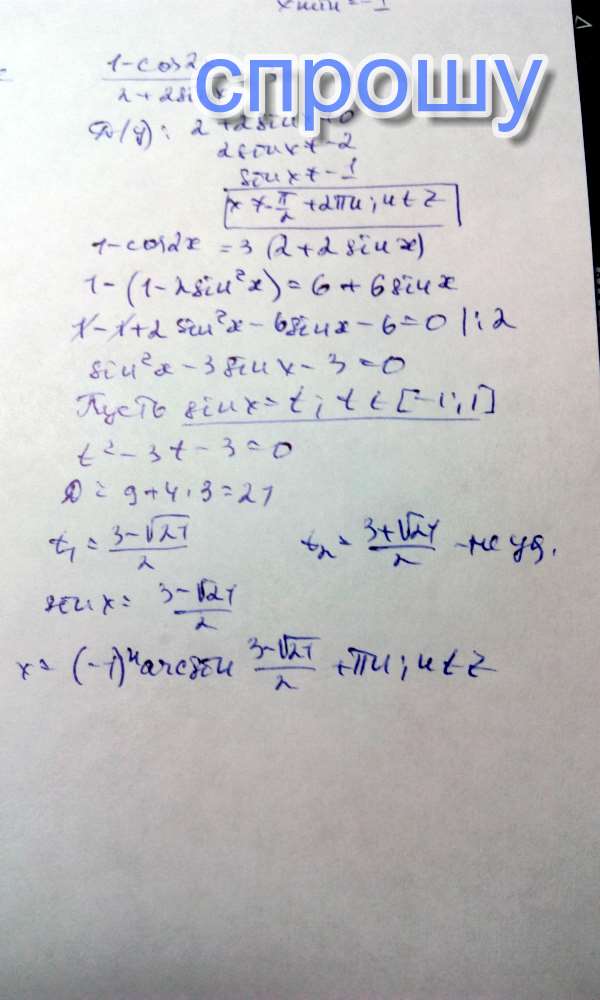 x min = -1
1-cos2
спрошу
2+2sin x
D(y): 2+2sin x ≠ 0
2sin x ≠ -2
sin x ≠ -1
x ≠ -π/2 + 2πn; n ∈ Z
1-cos2x = 3(2+2sin x)
1-(1-2sin²x) = 6+6sin x
1-1+2sin²x-6sin x-6=0 |:2
sin²x-3sin x-3=0
Пусть sin x = t; t ∈ [-1;1]
t²-3t-3=0
D = 9+4·3=21
t₁ = (3-√21)/2 t₂ = (3+√21)/2 - не уд.
sin x = (3-√21)/2
x = (-1)ⁿ arcsin (3-√21)/2 + πn; n ∈ Z